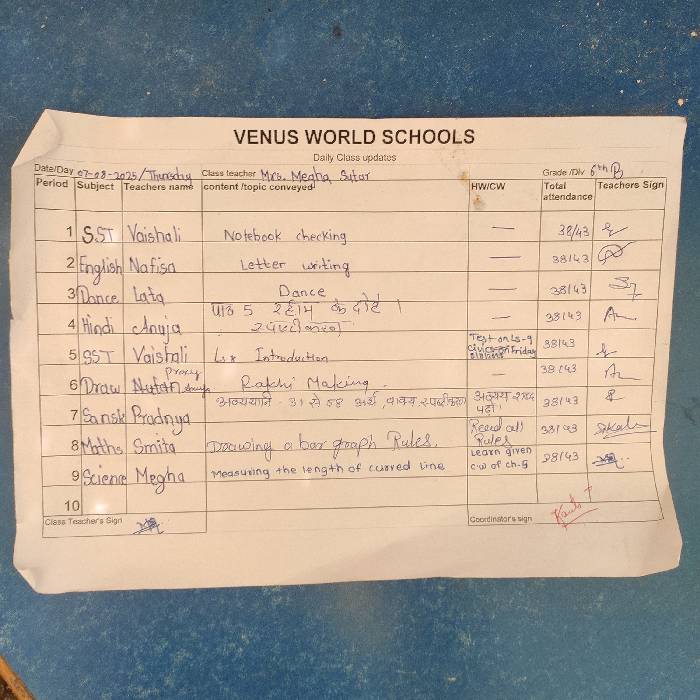 VENUS WORLD SCHOOLS
Daily Class updates
Date/Day 07-08-2025/Thursday Class teacher Mrs. Megha Sutar Grade /Div 6th B
Period Subject Teachers name content /topic conveyed HW/CW Total attendance Teachers Sign
1 SST Vaishali Notebook checking — 38/43
2 English Nafisa Letter writing — 38/43
3 Dance Lata Dance — 38/43
4 Hindi Anuja पाठ 5 रहीम के दोहे । स्पष्टीकरण — 38/43
5 SST Vaishali Introduction Test on Ls-9 Civics on Friday 38/43
6 Draw Nutan Proxy Anuja Rakhi Making. — 38/43
7 Sansk Pradnya अव्ययानि - 31 से 58 अर्थ, वाक्य स्पष्टीकरण अव्यय शब्द पढो। 38/43
8 Maths Smita Drawing a bar graph Rules. Read all Rules 38/43
9 Science Megha Measuring the length of curved line Learn given c.w of ch-5 38/43
10
Class Teacher's Sign Coordinator's sign